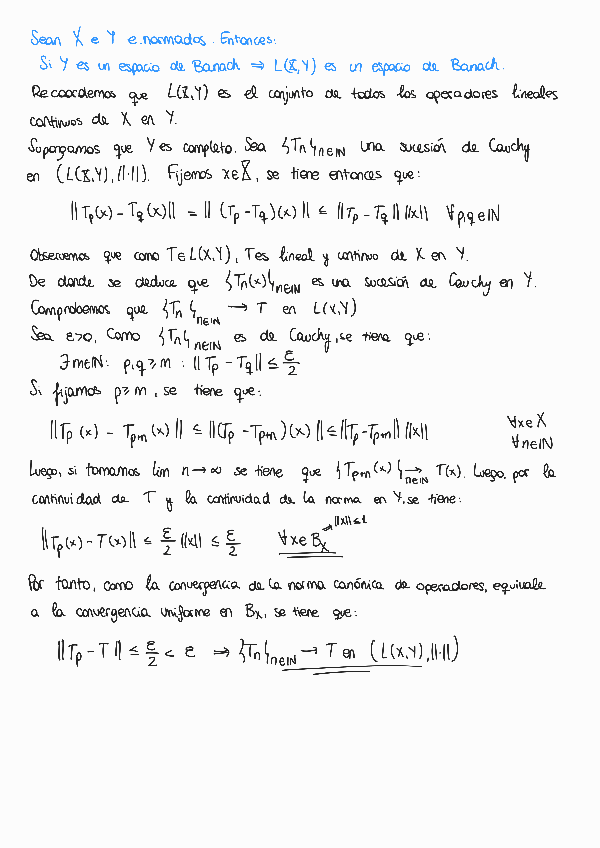 Sean X e Y e.normados. Entonces:
Si Y es un espacio de Banach ⇒ L(X,Y) es un espacio de Banach.
Recordemos que L(X,Y) es el conjunto de todos los operadores lineales
continuos de X en Y.
Supongamos que Y es completo. Sea {Tn}n∈ℕ una sucesión de Cauchy
en (L(X,Y), ||·||). Fijemos x∈X, se tiene entonces que:
||Tp(x) - Tq(x)|| = || (Tp - Tq)(x) || ≤ ||Tp - Tq|| ||x|| ∀p,q∈ℕ
Observemos que como T∈L(X,Y), T es lineal y continuo de X en Y.
De donde se deduce que {Tn(x)}n∈ℕ es una sucesión de Cauchy en Y.
Comprobemos que {Tn}n∈ℕ → T en L(X,Y)
Sea ε>0, Como {Tn}n∈ℕ es de Cauchy, se tiene que:
∃m∈ℕ: p,q ≥ m : ||Tp - Tq|| ≤ ε/2
Si fijamos p≥m, se tiene que:
||Tp(x) - Tp+n(x)|| ≤ ||(Tp - Tp+n)(x)|| ≤ ||Tp - Tp+n|| ||x|| ∀x∈X ∀n∈ℕ
Luego, si tomamos lim n→∞ se tiene que {Tp+n(x)}n∈ℕ → T(x). Luego, por la
continuidad de T y la continuidad de la norma en Y, se tiene:
||Tp(x) - T(x)|| ≤ ε/2 ||x|| ≤ ε/2 ∀x∈Bx → ||x||≤1
Por tanto, como la convergencia de la norma canónica de operadores, equivale
a la convergencia uniforme en Bx, se tiene que:
||Tp - T|| ≤ ε/2 < ε ⇒ {Tn}n∈ℕ → T en (L(X,Y), ||·||)